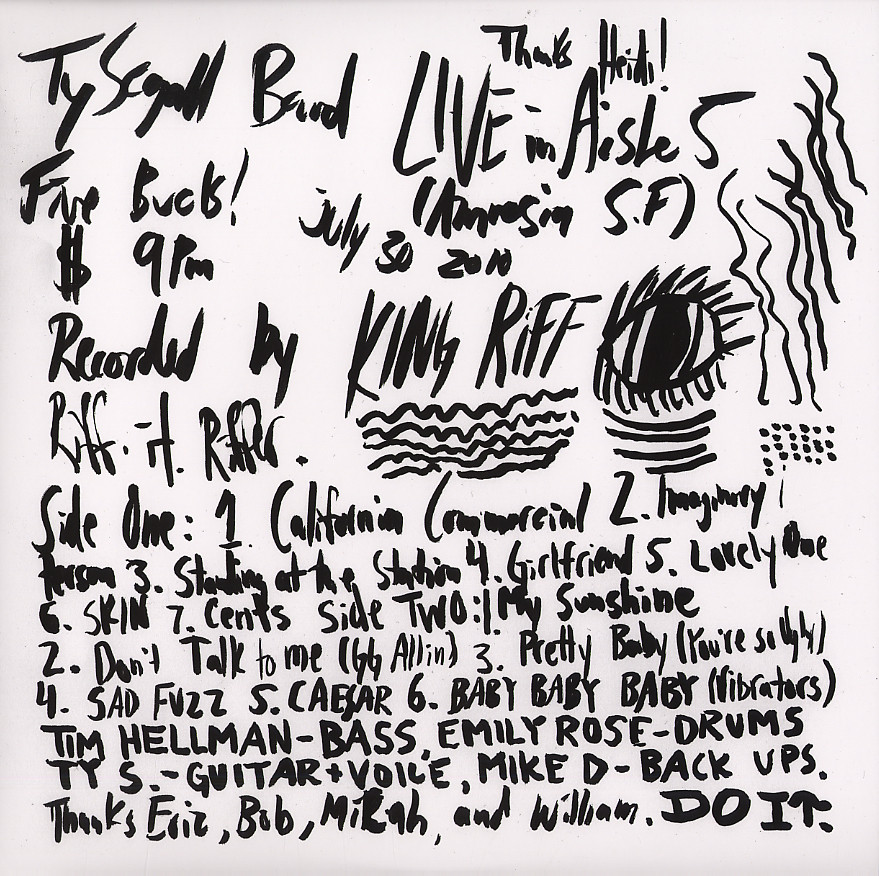 Thanks Heidi!
Ty Segall Band LIVE in Aisle 5
Five Bucks! (Amnesia S.F)
$ 9Pm july 30 2010
Recorded by KING RiFF
Riff. it. Riffer.
Side One: 1 California Commercial 2. Imaginary
Person 3. Standing at the Station 4. Girlfriend 5. Lovely One
6. SKIN 7. Cents Side TWO: 1 My Sunshine
2. Don't Talk to me (GG Allin) 3. Pretty Baby (You're so Ugly)
4. SAD FUZZ 5. CAESAR 6. BABY BABY BABY (Vibrators)
TIM HELLMAN-BASS, EMILY ROSE-DRUMS
TY S.-GUITAR+VOICE, MIKE D-BACK UPS.
Thanks Eric, Bob, MiKah, and William. DO IT.